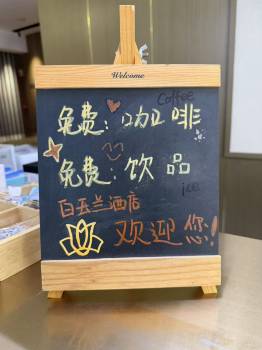 Welcome
Coffee
免费：咖啡
免费：饮品
ice
白玉兰酒店
欢迎您！